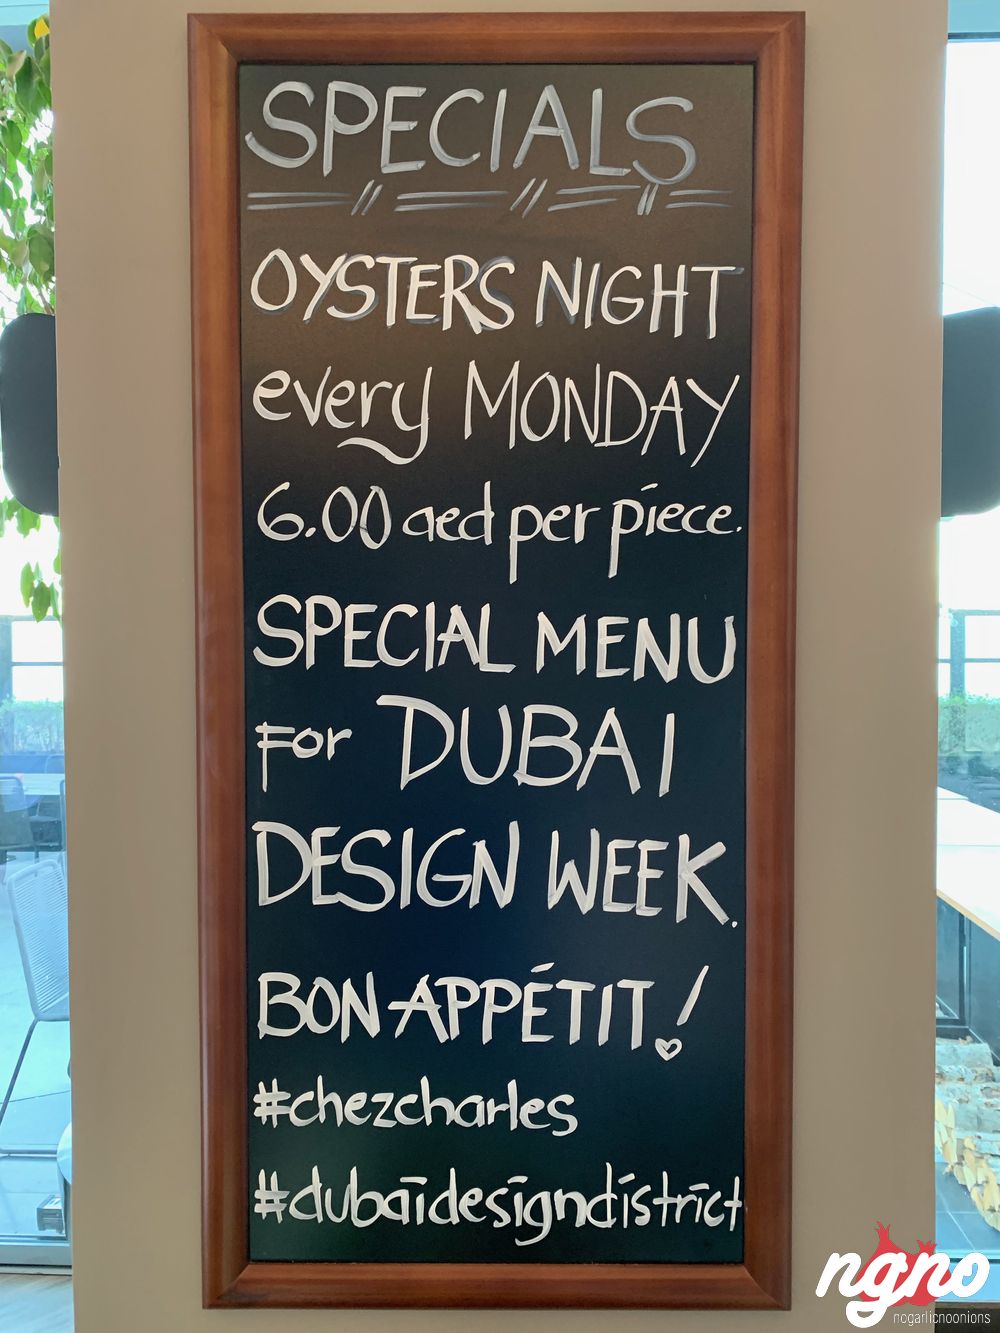 SPECIALS
OYSTERS NIGHT
every MONDAY
6.00 aed per piece.
SPECIAL MENU
For DUBAI
DESIGN WEEK.
BON APPÉTIT!
#chezcharles
#dubaidesigndistrict
ngno
nogarlicnoonions